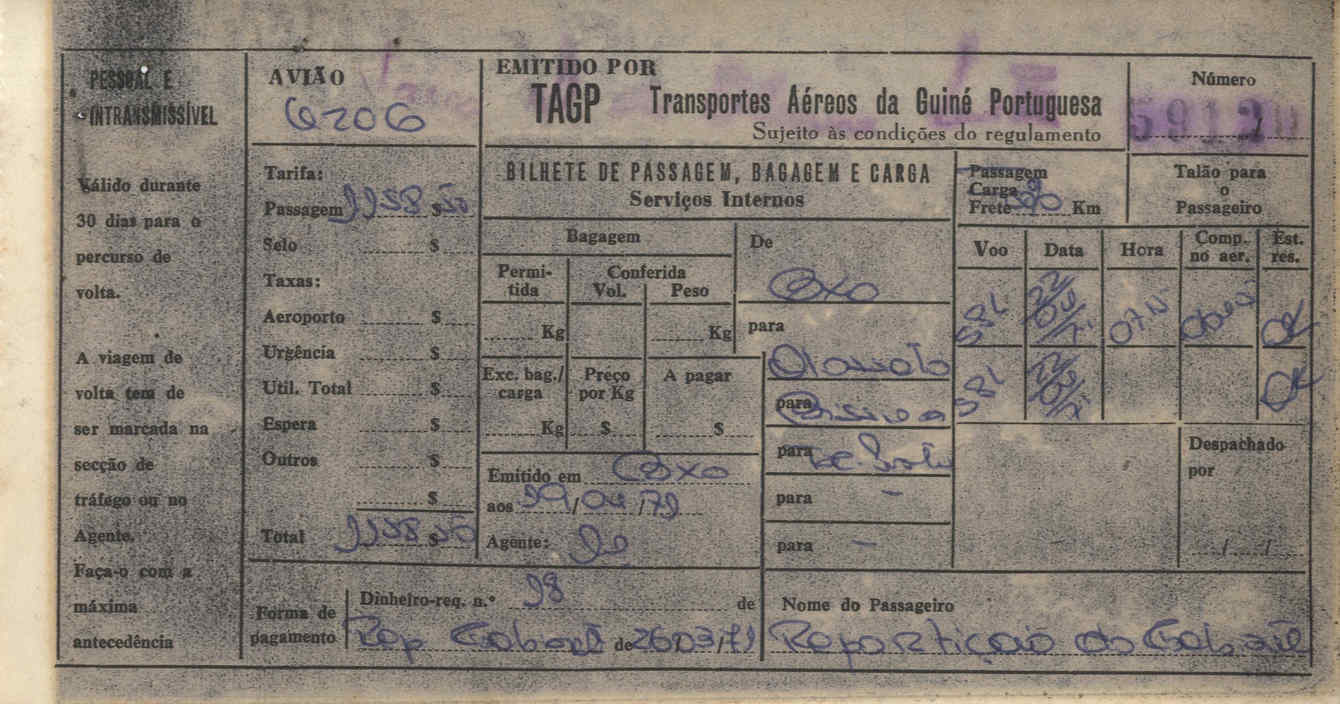 PESSOAL E
INTRANSMISSÍVEL
Válido durante
30 dias para o
percurso de
volta.
A viagem de
volta tem de
ser marcada na
secção de
tráfego ou no
Agente.
Faça-o com a
máxima
antecedência
AVIÃO
6206
Tarifa:
Passagem $ 50
Selo $
Taxas:
Aeroporto $
Urgência $
Util. Total $
Espera $
Outros $
$
Total $ 50
EMITIDO POR
TAGP Transportes Aéreos da Guiné Portuguesa
Sujeito às condições do regulamento
Número
BILHETE DE PASSAGEM, BAGAGEM E CARGA
Serviços Internos
Passagem
Carga
Frete Km
Talão para
o
Passageiro
Bagagem
Permi-
tida
Conferida
Vol. Peso
Kg Kg
Exc. bag./
carga
Preço
por Kg
A pagar
Kg $ $
Emitido em BXO
aos /04/71
Agente:
De
BXO
para
para
Bissau
para
para -
para -
Voo Data Hora Comp.
no aer.
Est.
res.
OK
OK
Despachado
por
/ /
Forma de
pagamento
Dinheiro-req. n.º 98 de
Rep Gabinete de 26/03/71
Nome do Passageiro
Repartição do Gabinete